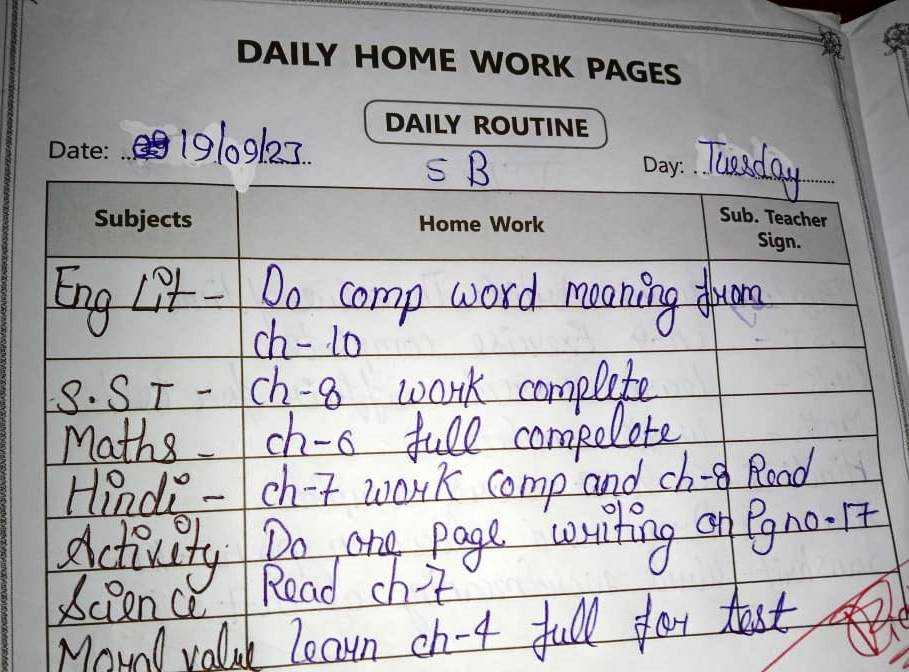 DAILY HOME WORK PAGES
DAILY ROUTINE
Date: 19/09/23
5 B
Day: Tuesday
Subjects Home Work Sub. Teacher Sign.
Eng Lit - Do comp word meaning from
ch-10
S.ST - ch-8 work complete
Maths - ch-6 full compelete
Hindi - ch-7 work comp and ch-8 Read
Activity Do one page writing on Pg no. 17
Science Read ch-7
Moral value learn ch-4 full for test